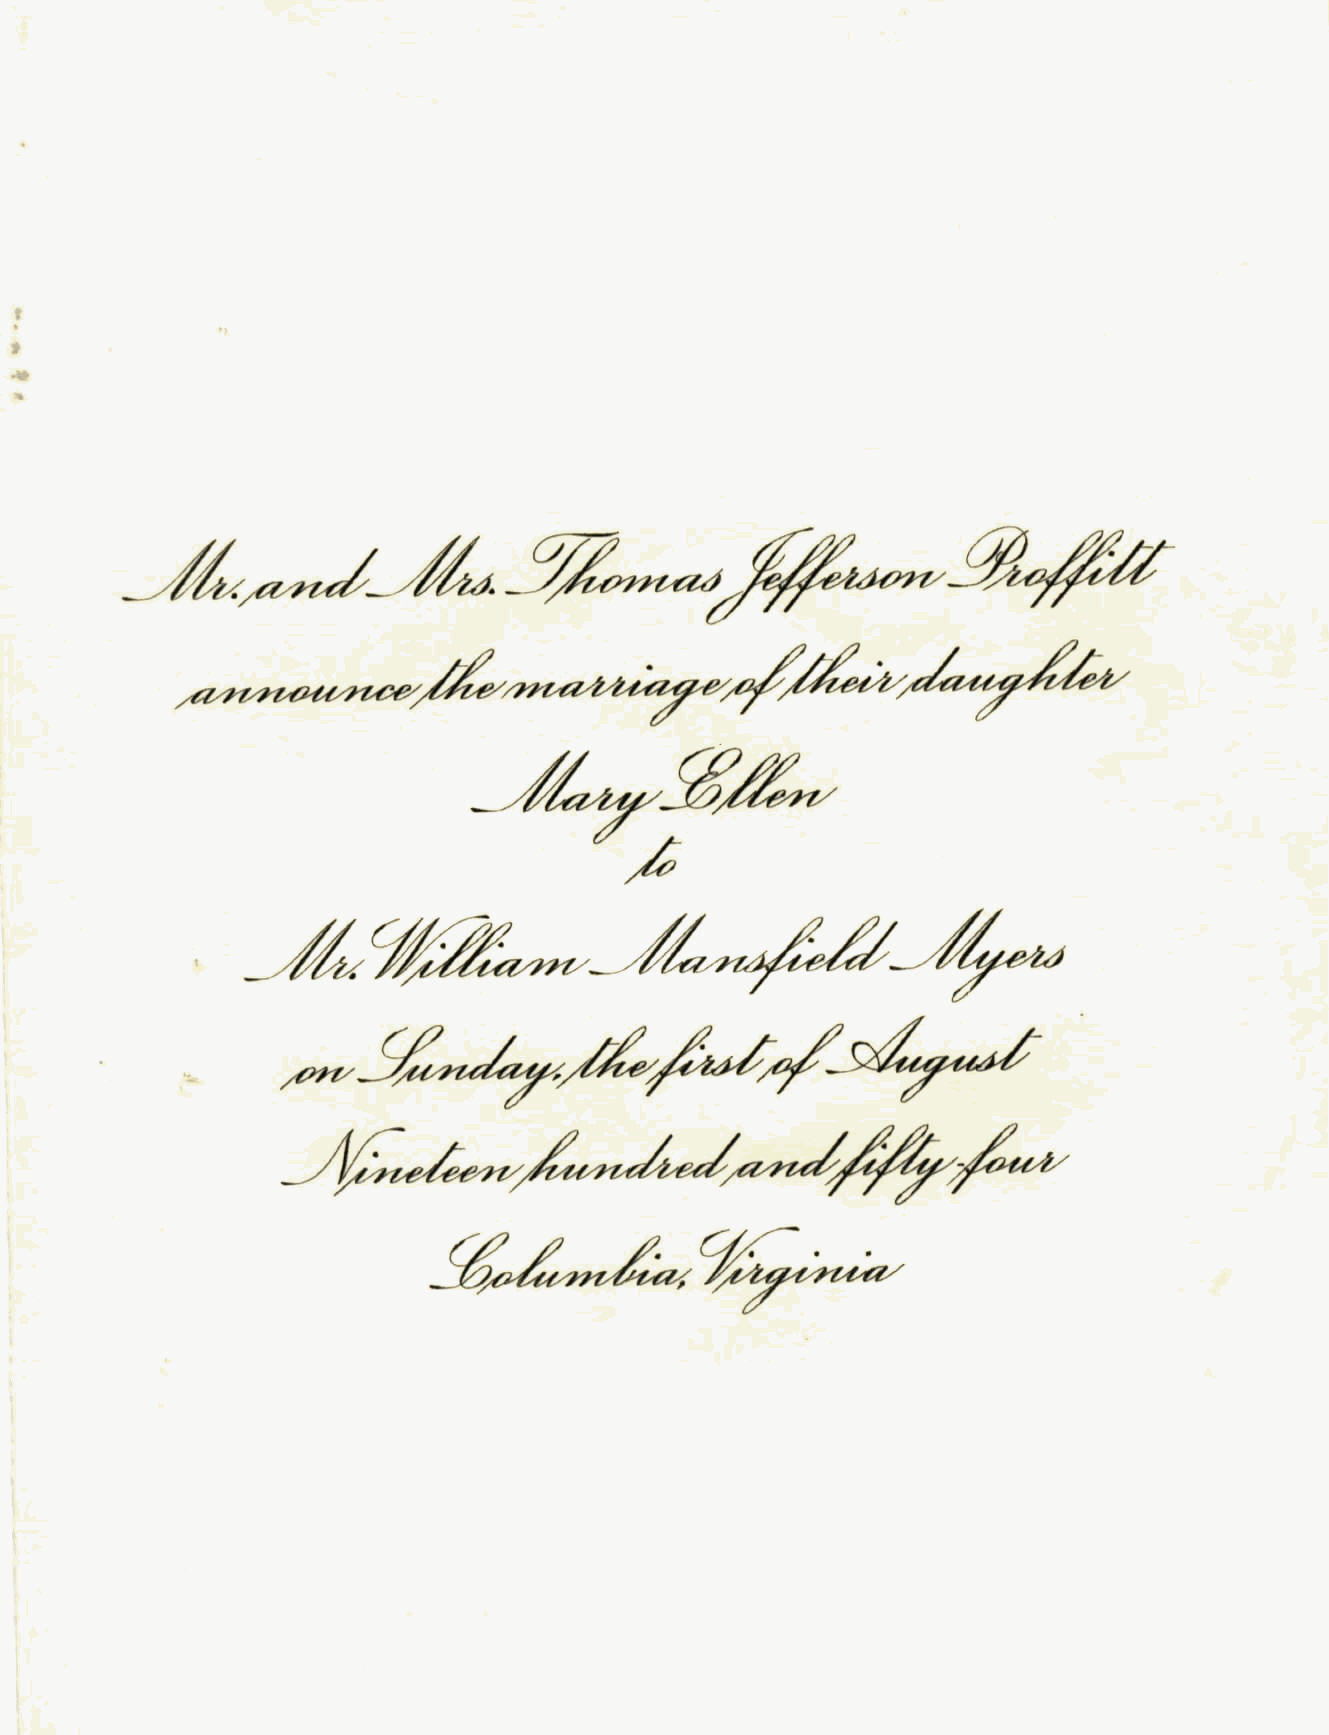 Mr. and Mrs. Thomas Jefferson Proffitt
announce the marriage of their daughter
Mary Ellen
to
Mr. William Mansfield Myers
on Sunday, the first of August
Nineteen hundred and fifty-four
Columbia, Virginia